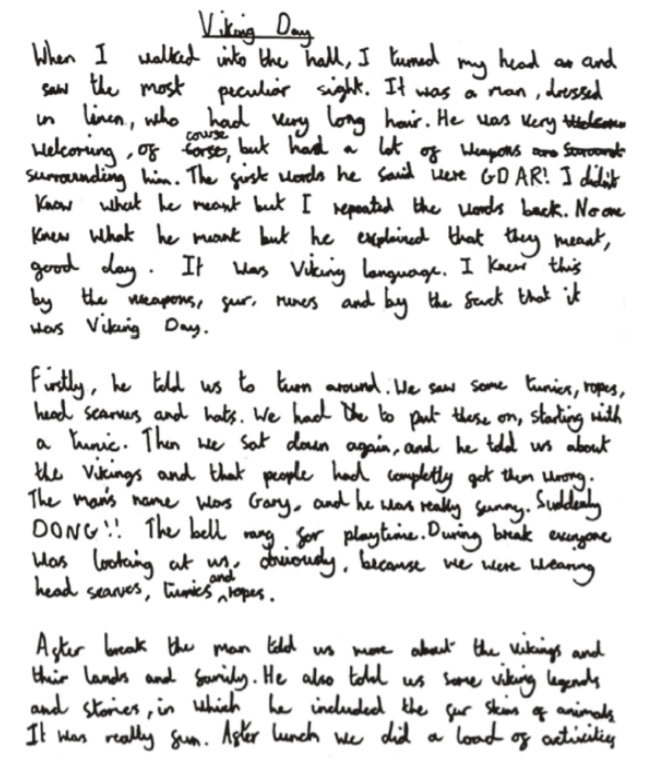 Viking Day
When I walked into the hall, I turned my head and
saw the most peculiar sight. It was a man, dressed
in linen, who had very long hair. He was very
welcoming, of course, but had a lot of weapons
surrounding him. The first words he said were GDAR! I didn't
know what he meant but I repeated the words back. No one
knew what he meant but he explained that they meant,
good day. It was Viking language. I knew this
by the weapons, fur, runes and by the fact that it
was Viking Day.
Firstly, he told us to turn around. We saw some tunics, ropes,
head scarves and hats. We had to put these on, starting with
a tunic. Then we sat down again, and he told us about
the Vikings and that people had completly got them wrong.
The man's name was Gary, and he was really funny. Suddenly
DONG!! The bell rang for playtime. During break everyone
was looking at us, obviously, because we were wearing
head scarves, tunics and ropes.
After break the man told us more about the vikings and
their lands and family. He also told us some viking legends
and stories, in which he included the fur skins of animals
It was really fun. After lunch we did a load of activities